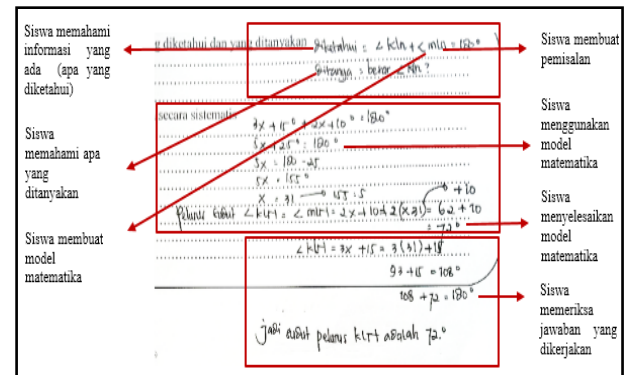 Siswa memahami
informasi yang
ada (apa yang
diketahui)
Siswa
memahami apa
yang
ditanyakan
Siswa membuat
model
matematika
g diketahui dan yang ditanyakan
Diketahui : ∠kln + ∠mln = 180°
Ditanya : besar ∠kln ?
secara sistematis
3x + 15° + 2x + 10° = 180°
5x + 25° = 180°
5x = 180 - 25
5x = 155°
x = 31 → 155 : 5
Pelurus sudut ∠kln = ∠mln = 2x + 10 + 2(x31) = 62 + 10
+10
= 72°
∠kln = 3x + 15 = 3(31) + 15
93 + 15 = 108°
108 + 72 = 180°
jadi sudut pelurus kln adalah 72°
Siswa membuat
pemisalan
Siswa
menggunakan
model
matematika
Siswa
menyelesaikan
model
matematika
Siswa
memeriksa
jawaban yang
dikerjakan